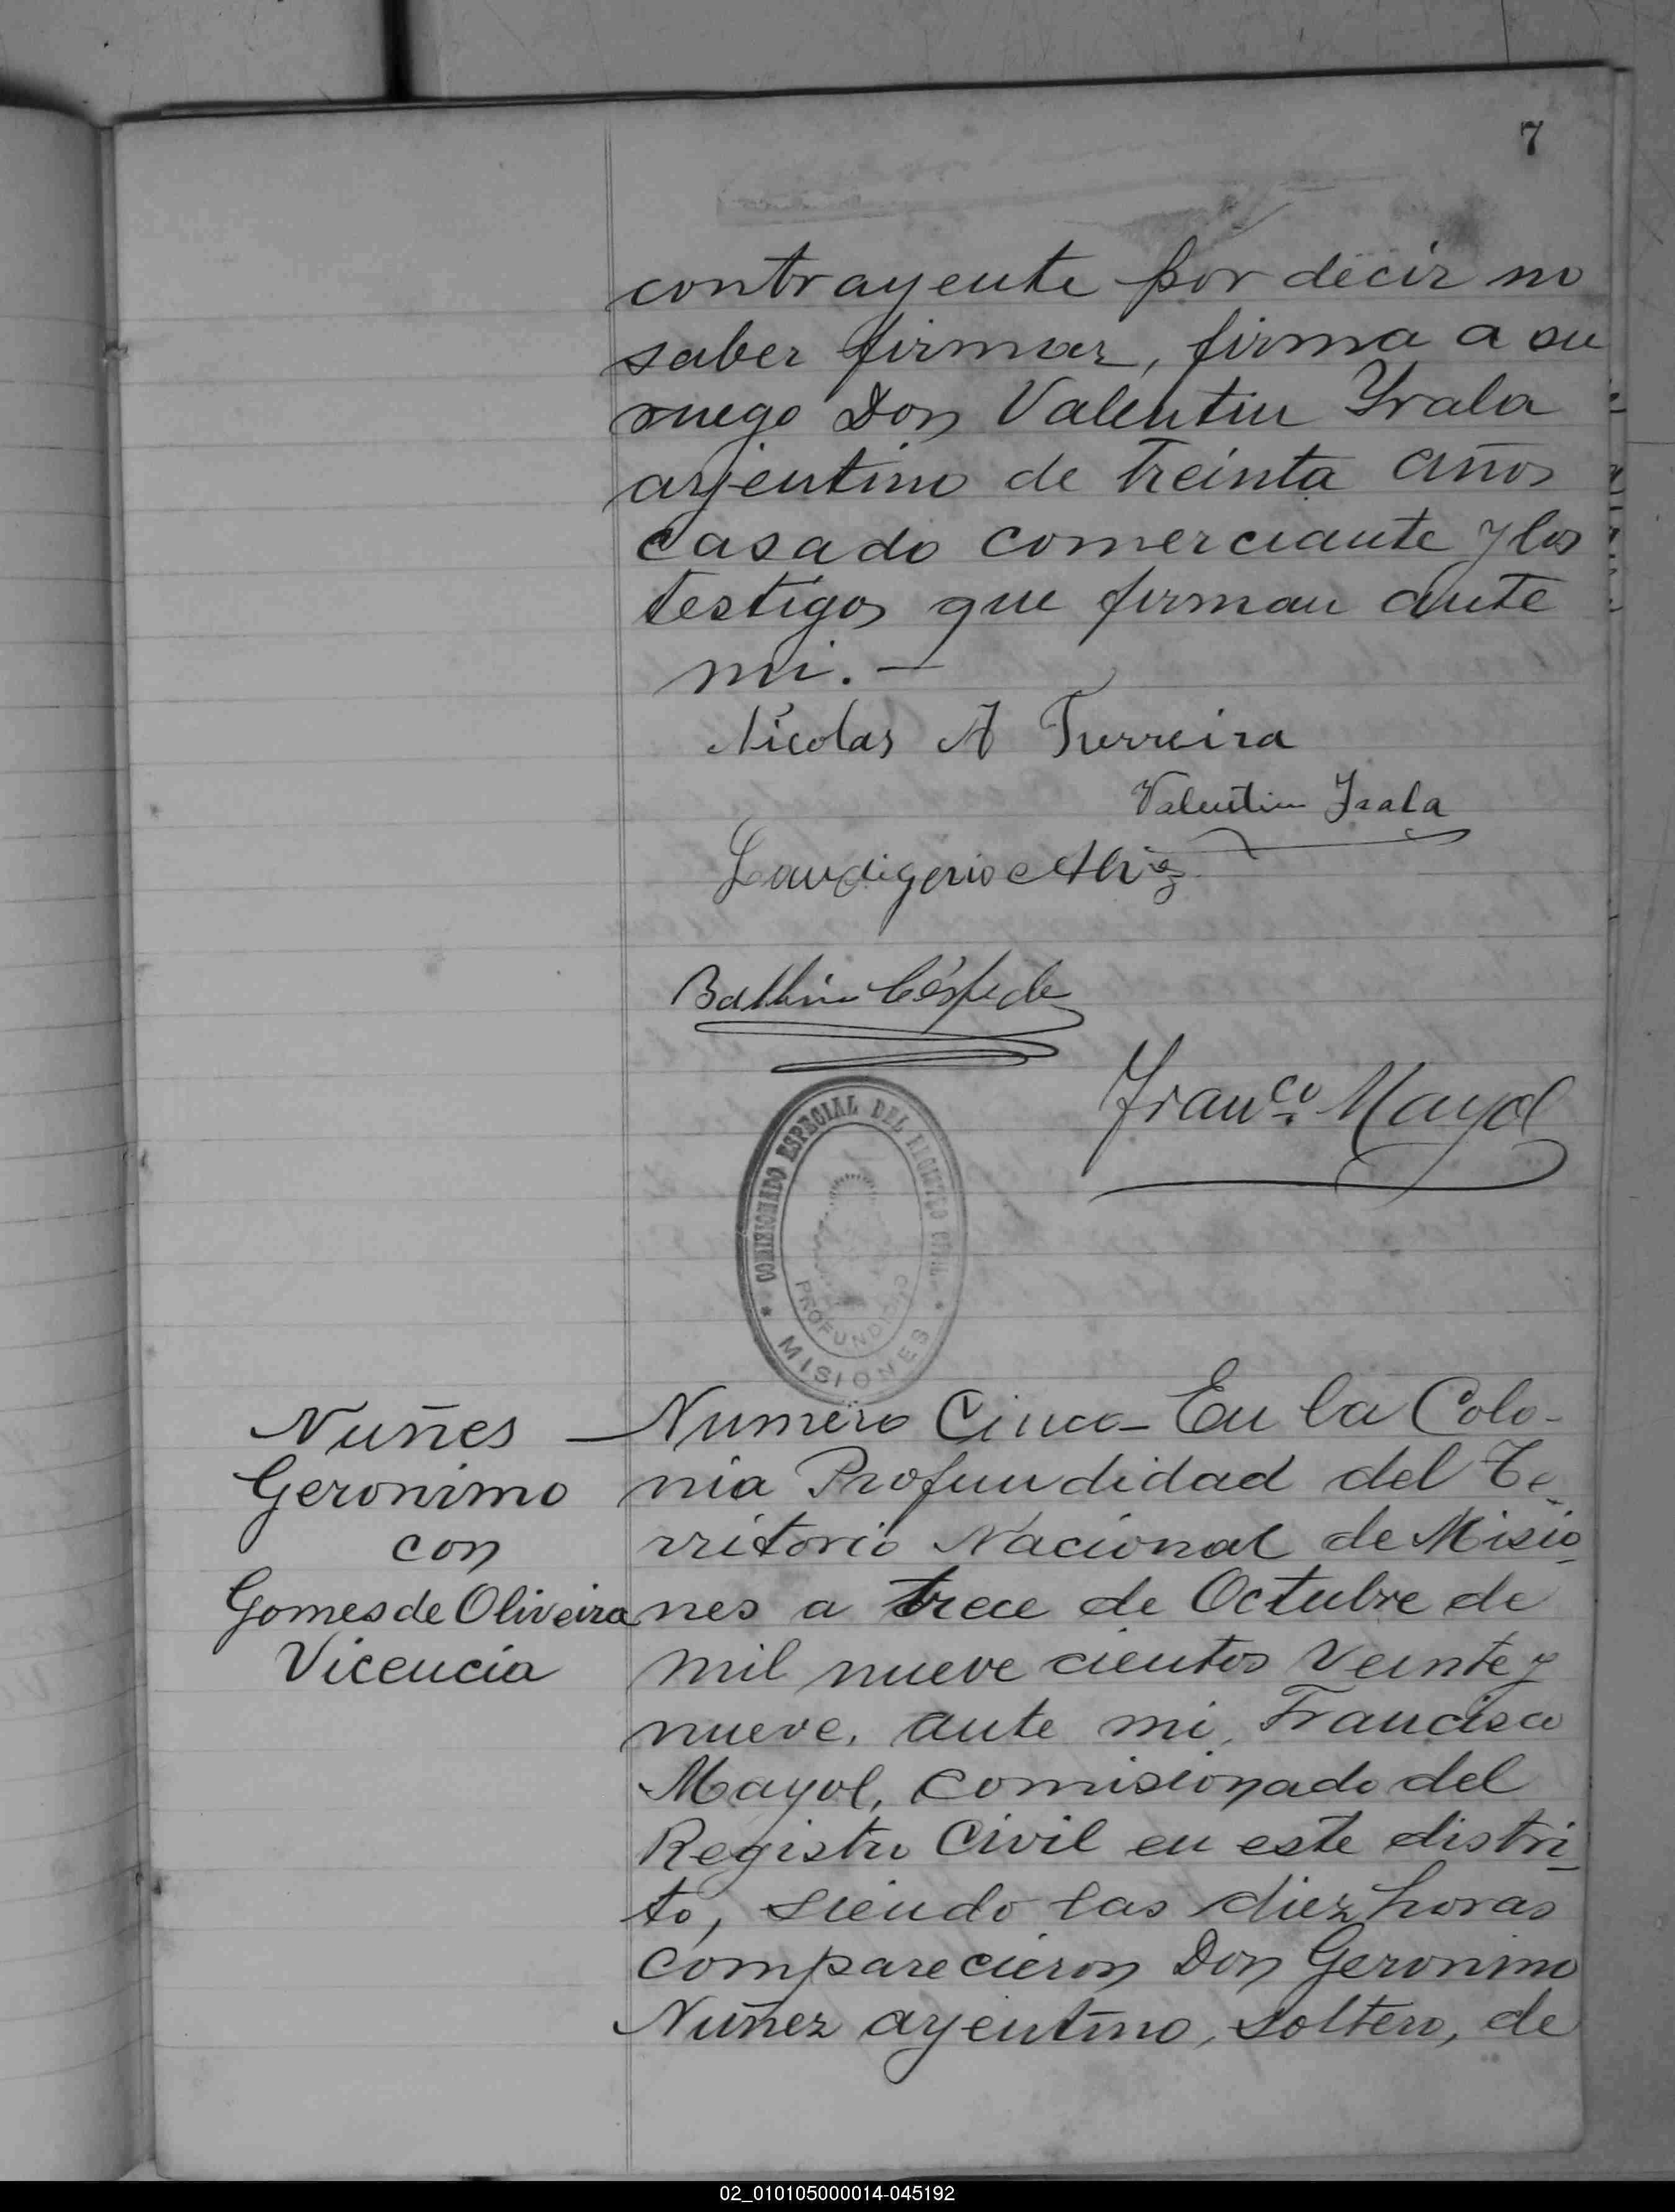 7
contrayente por decir no
saber firmar, firma a su
ruego Don Valentin Yrala
arjentino de treinta años
casado comerciante y los
testigos que firman ante
mi. —
Nicolas A Ferreira
Valentin Irala
Balbin Céspede
Franco. Mayol
COMISIONADO ESPECIAL DEL REGISTRO CIVIL
PROFUNDIDAD
MISIONES
Nuñes
Geronimo
con
Gomes de Oliveira
Vicencia
Numero Cinco - En la Colo-
nia Profundidad del Te-
rritorio Nacional de Misio-
nes a trece de Octubre de
mil nueve cientos veinte y
nueve, ante mi, Francisco
Mayol, comisionado del
Registro Civil en este distri-
to, siendo las diez horas
comparecieron Don Geronimo
Nuñez arjentino, soltero, de
02_010105000014-045192